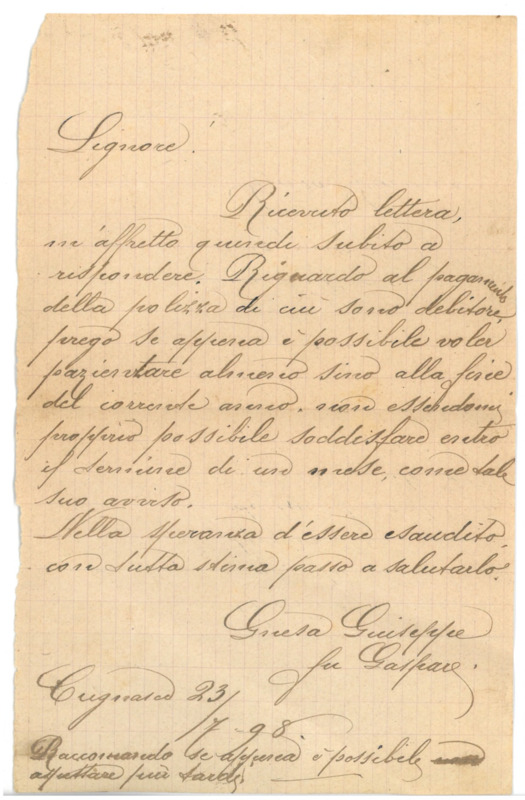 Signore!
Ricevuto lettera,
m'affretto quindi subito a
rispondere. Riguardo al pagamento
della polizza di cui sono debitore,
prego se appena è possibile voler
pazientare almeno sino alla fine
del corrente anno, non essendomi
proppio possibile soddisfare entro
il termine di un mese, come tale
suo avviso.
Nella speranza d'essere esaudito
con tutta stima passo a salutarlo.
Giuseppe
fu Gaspare.
Cugnasco 23/
/7 98.
Raccomando se appena è possibile
aspettare più tardi.